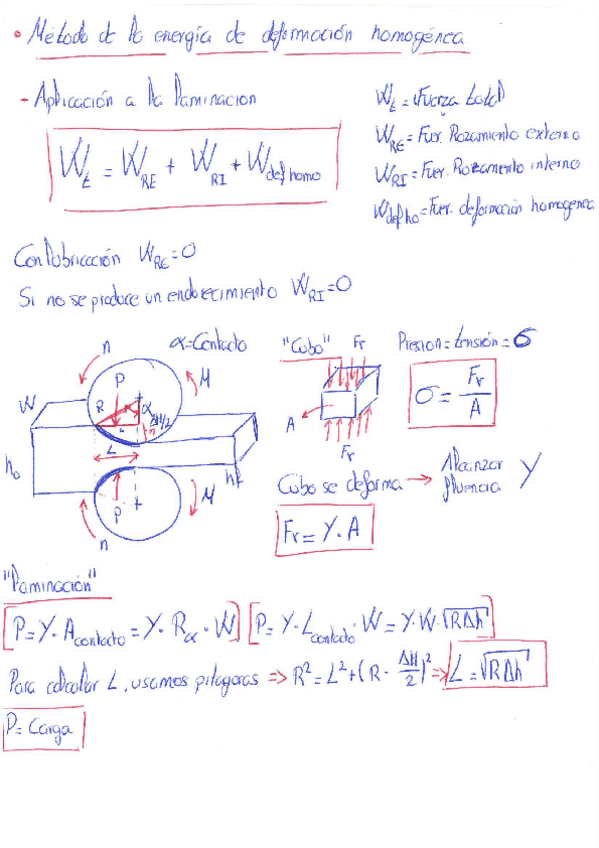 • Método de la energía de deformación homogénea
- Aplicación a la laminacion
W_t = (Fuerza total)
W_RE = Fuer. Rozamiento externo
W_RI = Fuer. Rozamiento interno
W_def ho = Fuer. deformación homogenea
W_t = W_RE + W_RI + W_def homo
Con lubricación W_RE = 0
Si no se produce un endurecimiento W_RI = 0
α = Contacto
"Cubo"
Fr
Presion = tensión = σ
σ = Fr / A
n
P
M
W
R
α
ΔH/2
L
h₀
hf
A
Fr
M
P
n
Cubo se deforma → Alcanzar fluencia Y
Fr = Y · A
"Laminación"
P = Y · A_contacto = Y · R_α · W
P = Y · L_contacto · W = Y · W · √RΔh
Para calcular L, usamos pitagoras ⇒ R² = L² + (R - ΔH/2)² ⇒ L = √RΔh
P = Carga